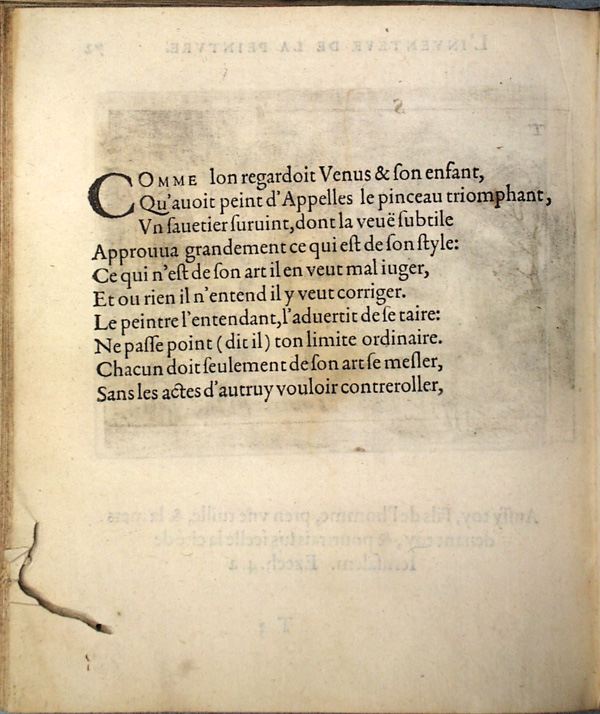 COMME lon regardoit Venus & ſon enfant,
Qu'auoit peint d'Appelles le pinceau triomphant,
Vn ſauetier ſuruint, dont la veuë ſubtile
Approuua grandement ce qui eſt de ſon ſtyle:
Ce qui n'eſt de ſon art il en veut mal iuger,
Et ou rien il n'entend il y veut corriger.
Le peintre l'entendant, l'aduertit de ſe taire:
Ne paſſe point (dit il) ton limite ordinaire.
Chacun doit ſeulement de ſon art ſe meſler,
Sans les actes d'autruy vouloir contreroller,